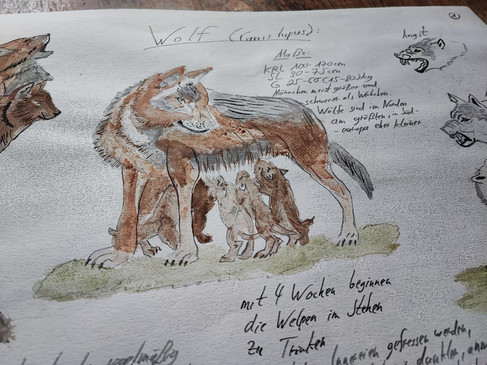 Wolf (Canis lupus):
Angst
Maße:
KRL 100-120cm
SL 30-75cm
G 25-60 (15-80) kg
Männchen meist größer und
schwerer als Weibchen.
Wölfe sind im Norden
am größten, in Süd-
europa eher kleiner
mit 4 Wochen beginnen
die Welpen im Stehen
zu Trinken
regelmäßig
Innereien gefressen werden,